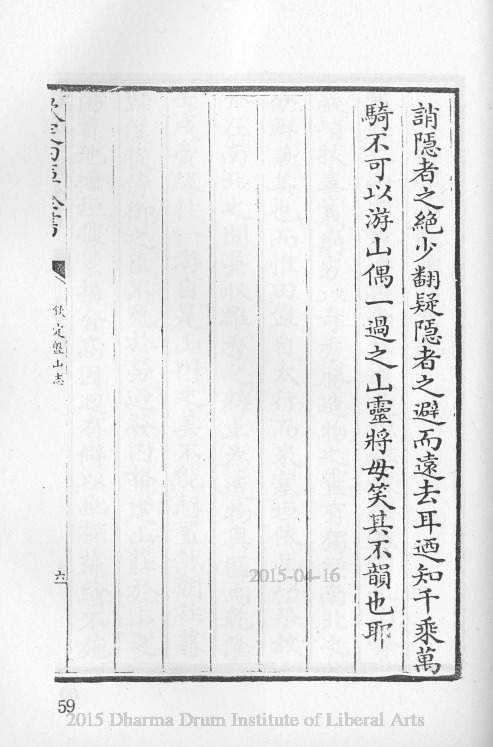 誚隠者之絶少翻疑隠者之避而逺去耳廼知千乘萬
騎不可以游山偶一過之山靈将毋笑其不韻也耶
欽定四庫全書
欽定盤山志
六
59
2015-04-16
2015 Dharma Drum Institute of Liberal Arts